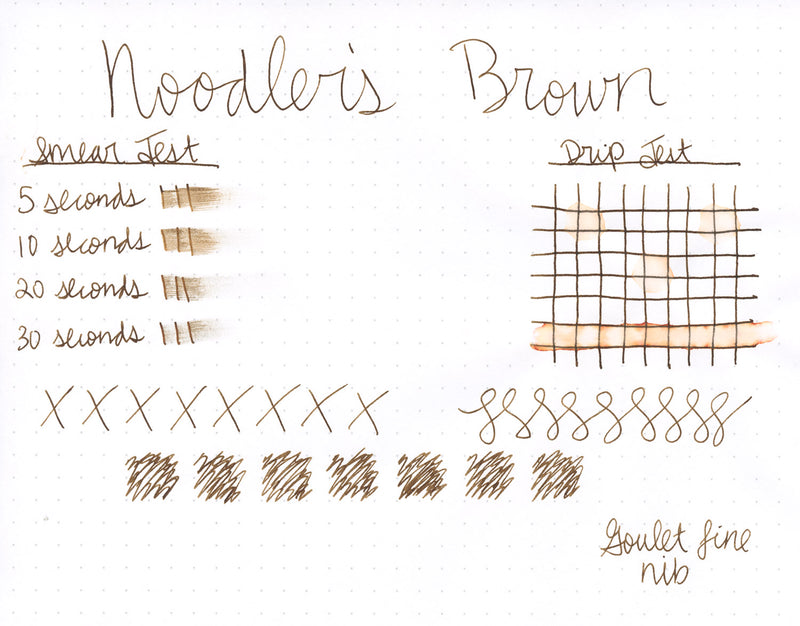 Noodler's Brown
Smear Test
5 seconds
10 seconds
20 seconds
30 seconds
Drip Test
X X X X X X X X
Goulet fine
nib